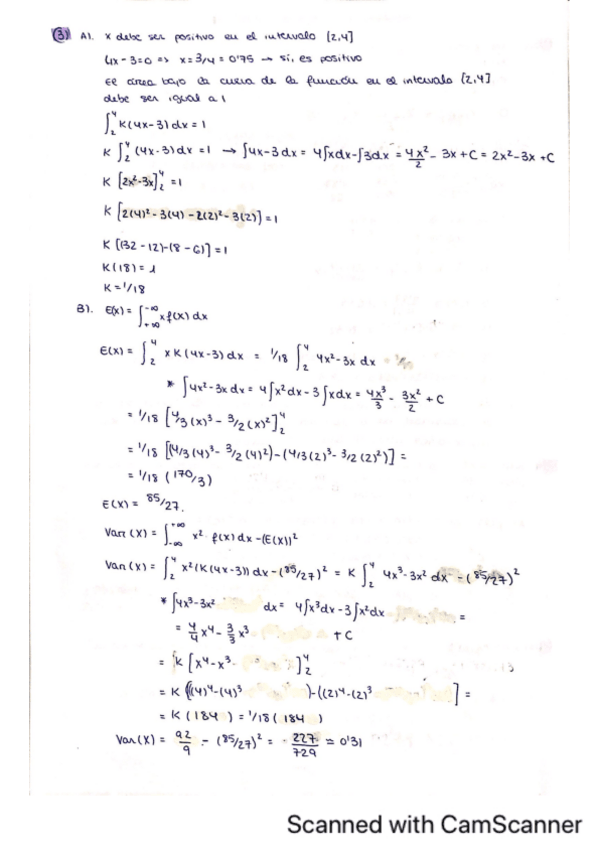 ③ A). x debe ser positivo en el intervalo [2,4]
4x - 3 = 0 => x = 3/4 = 0'75 → sí, es positivo
El área bajo la curva de la función en el intervalo [2,4]
debe ser igual a 1
∫₂⁴ K(4x-3) dx = 1
K ∫₂⁴ (4x-3) dx = 1 → ∫4x-3 dx = 4∫xdx - ∫3dx = 4x²/2 - 3x + C = 2x² - 3x + C
K [2x²-3x]₂⁴ = 1
K [2(4)² - 3(4) - 2(2)² - 3(2)] = 1
K [(32-12)-(8-6)] = 1
K(18) = 1
K = 1/18
B). E(x) = ∫₊∞⁻∞ x f(x) dx
E(x) = ∫₂⁴ x K (4x-3) dx = 1/18 ∫₂⁴ 4x²-3x dx
* ∫4x²-3x dx = 4∫x²dx - 3∫xdx = 4x³/3 - 3x²/2 + C
= 1/18 [4/3 (x)³ - 3/2 (x)²]₂⁴
= 1/18 [(4/3 (4)³ - 3/2 (4)²) - (4/3 (2)³ - 3/2 (2)²)] =
= 1/18 (170/3)
E(x) = 85/27.
Var (x) = ∫₋∞⁺∞ x² f(x) dx - (E(x))²
Var (x) = ∫₂⁴ x² (K(4x-3)) dx - (85/27)² = K ∫₂⁴ 4x³-3x² dx - (85/27)²
* ∫4x³-3x² dx = 4∫x³dx - 3∫x²dx =
= 4/4 x⁴ - 3/3 x³ + C
= K [x⁴-x³ ]₂⁴
= K [((4)⁴-(4)³ )-((2)⁴-(2)³ ] =
= K (184 ) = 1/18 (184 )
Var (x) = 92/9 - (85/27)² = 227/729 = 0'31
Scanned with CamScanner